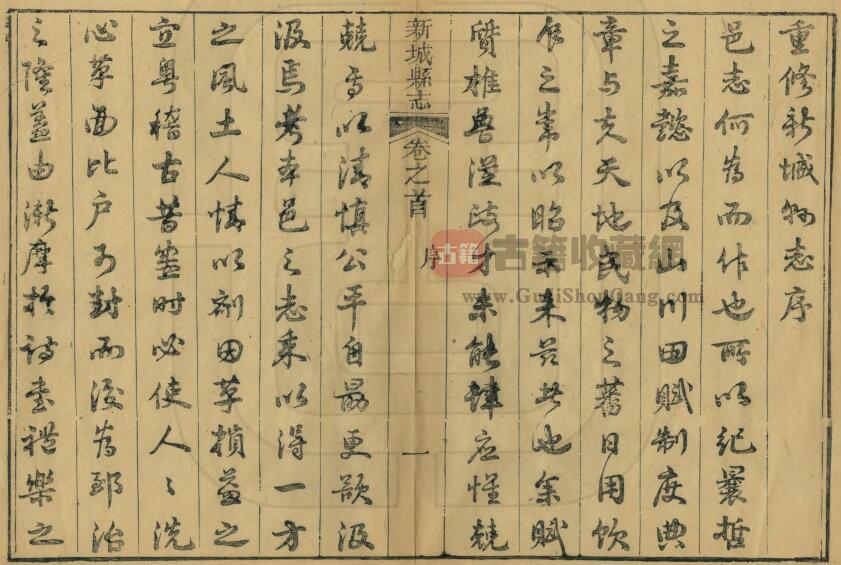 重修新城縣志序
邑志何為而作也所以紀曩哲
之嘉懿以及山川田賦制度典
章與夫天地民物之蕃日用飲
食之常以昭示來茲者也余賦
質椎魯淺才未能肆應惟兢
新城縣志
卷之首
序
一
兢焉以清慎公平自勗更欲汲
汲焉考本邑之志乘以得一方
之風土人情以劑因革損益之
宜粵稽古昔盛時必使人〻洗
心革面比戶可封而後為郅治
之隆蓋由漸摩於詩書禮樂之
古籍
古籍收藏網
www.GujiShouCang.com